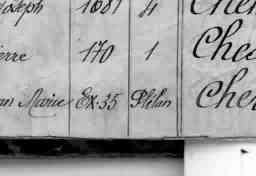 oseph 1081 4 Che
ierre 170 1 Ches
an Marie Ex. 35 Plélan Che